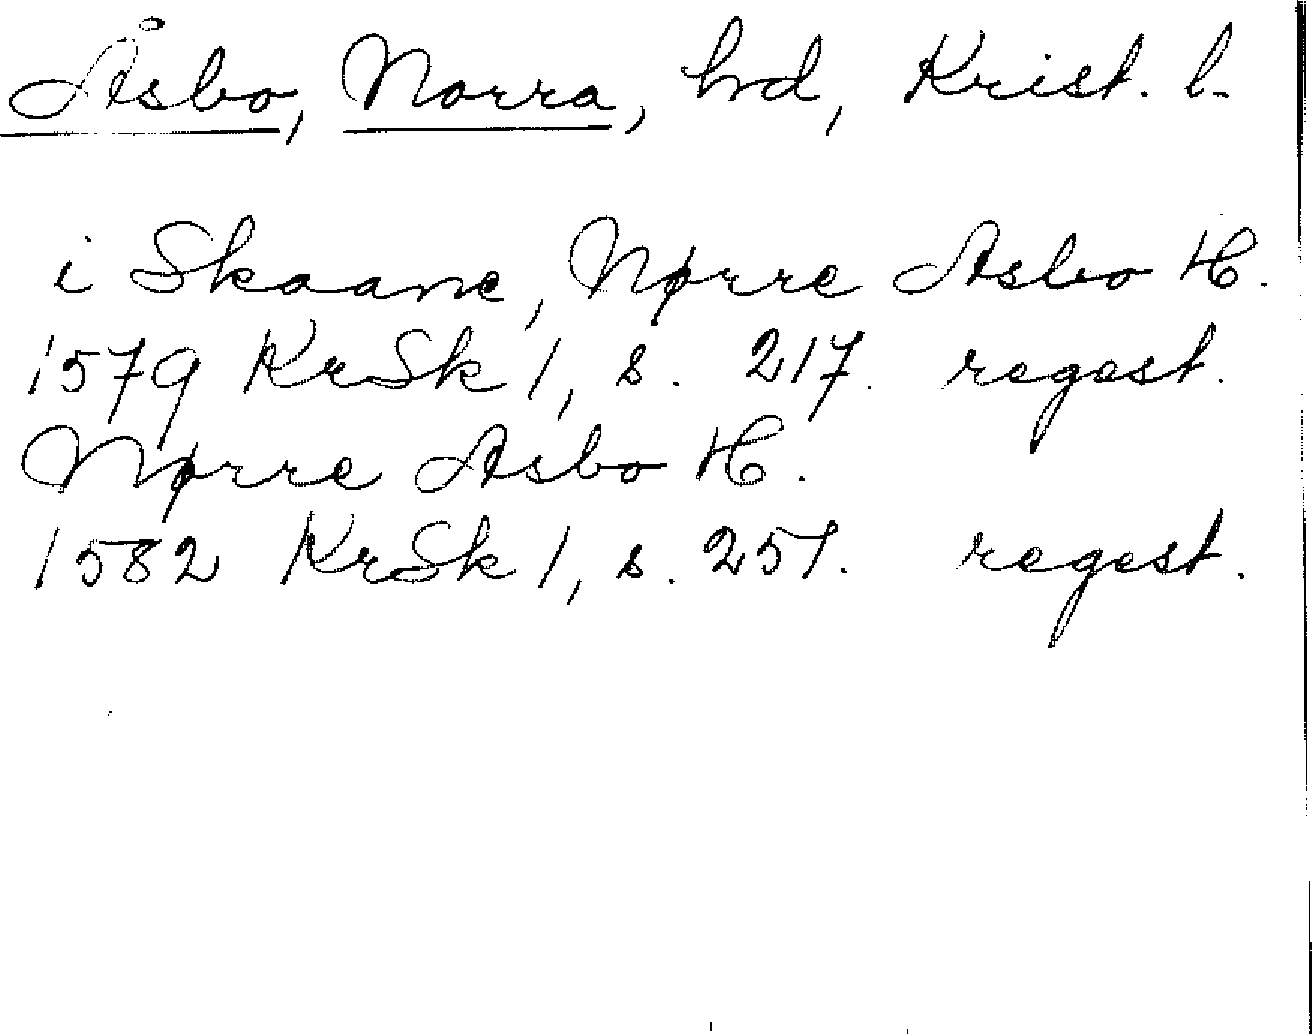 Åsbo, Norra, hd, Krist. l.
i Skaane, Nørre Asbo H.
1579 KrSk 1, s. 217. regest.
Nørre Asbo H.
1582 KrSk 1, s. 257. regest.